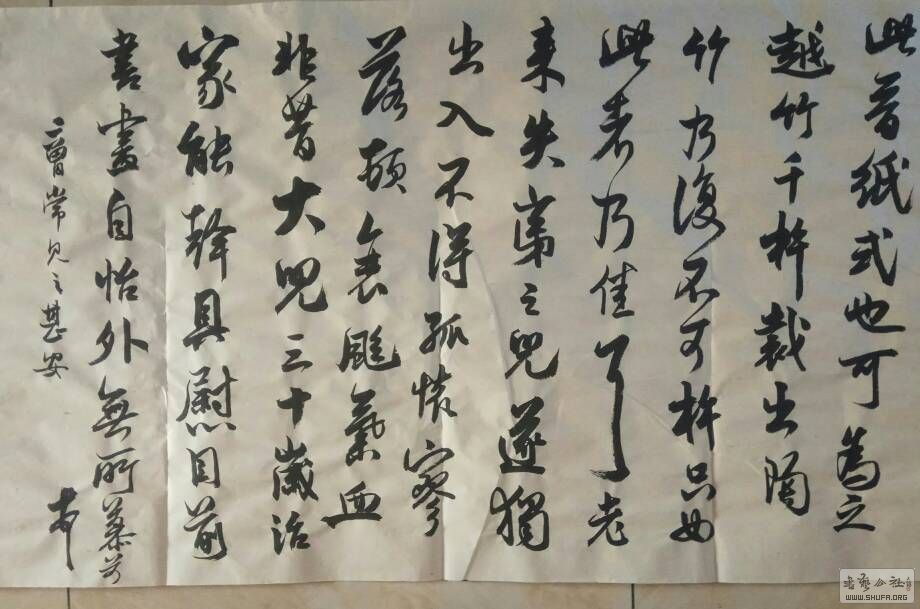 此晉紙式也可為之
越竹千杵裁出陶
竹乃復不可杵只如
此者乃佳耳老
来失第之兒遂獨
出入不得孤懷寥
落頓衰颯氣血
非昔大兒三十歲治
家能幹且慰目前
書畫自怡外無所慕
二曾常見之甚安
芾
書藝公社
WWW.SHUFA.ORG